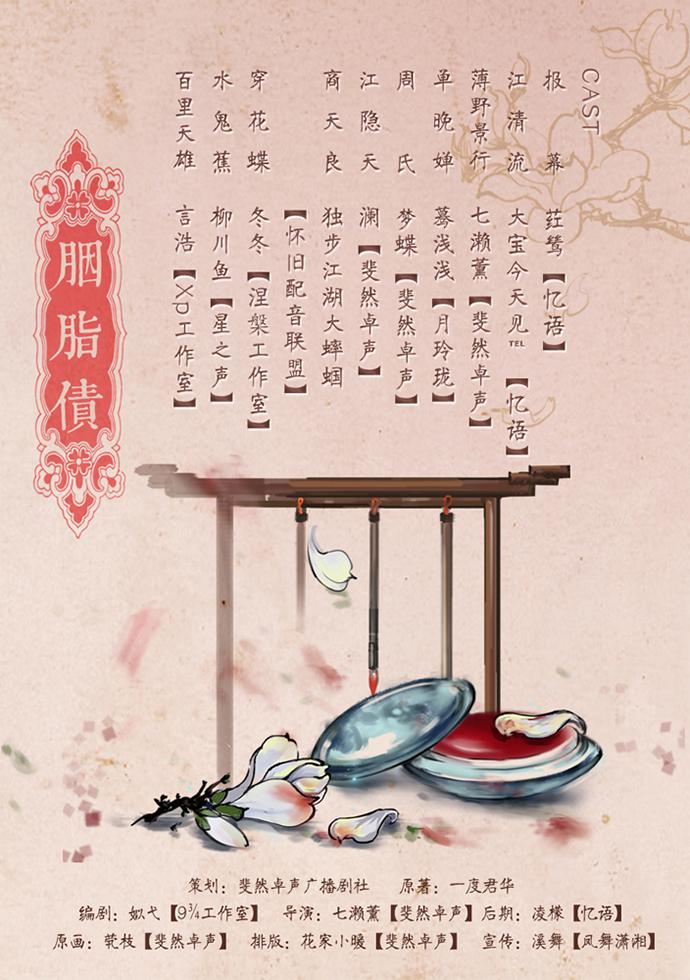 CAST
报幕 荭鸶【忆语】
江清流 大宝今天见℡【忆语】
薄野景行 七濑薰【斐然卓声】
单晚婵 蓦浅浅【月玲珑】
周氏 梦蝶【斐然卓声】
江隐天 澜【斐然卓声】
商天良 独步江湖大蟀蝈
【怀旧配音联盟】
穿花蝶 冬冬【涅槃工作室】
水鬼蕉 柳川鱼【星之声】
百里天雄 言浩【Xp工作室】
胭脂債
策划：斐然卓声广播剧社 原著：一度君华
编剧：姒弋【9¾工作室】 导演：七濑薰【斐然卓声】后期：凌檬【忆语】
原画：茕枝【斐然卓声】 排版：花家小暖【斐然卓声】 宣传：溪舞【凤舞潇湘】